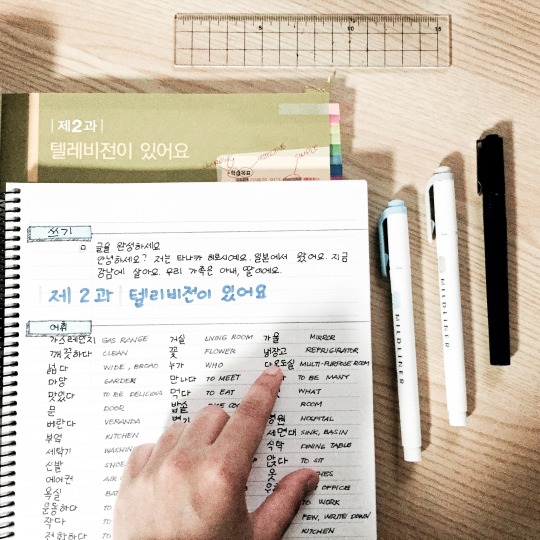 5 10 15
|제2과|
텔레비전이 있어요
쓰기
글을 완성하세요
안녕하세요? 저는 타나카 히로시예요. 일본에서 왔어요. 지금
강남에 살아요. 우리 가족은 아내, 딸이예요.
제 2 과 텔리비전이 있어요
어휘
가스레인지 GAS RANGE 거실 LIVING ROOM 거울 MIRROR
깨끗하다 CLEAN 꽃 FLOWER 냉장고 REFRIGIRATOR
넓다 WIDE, BROAD 누가 WHO 다용도실 MULTI-PURPOSE ROOM
마당 GARDEN 만나다 TO MEET TO BE MANY
맛있다 TO BE DELICIOUS 먹다 TO EAT WHAT
문 DOOR ROOM
베란다 VERANDA 병원 HOSPITAL
부엌 KITCHEN 세면대 SINK, BASIN
세탁기 식탁 DINING TABLE
신발 앉다 TO SIT
에어컨 AIR 옷
욕실 OFFICE
운동하다 TO WORK
작다 FEW, WRITE DOWN
전화하다 KITCHEN
MILDLINER
MILDLINER